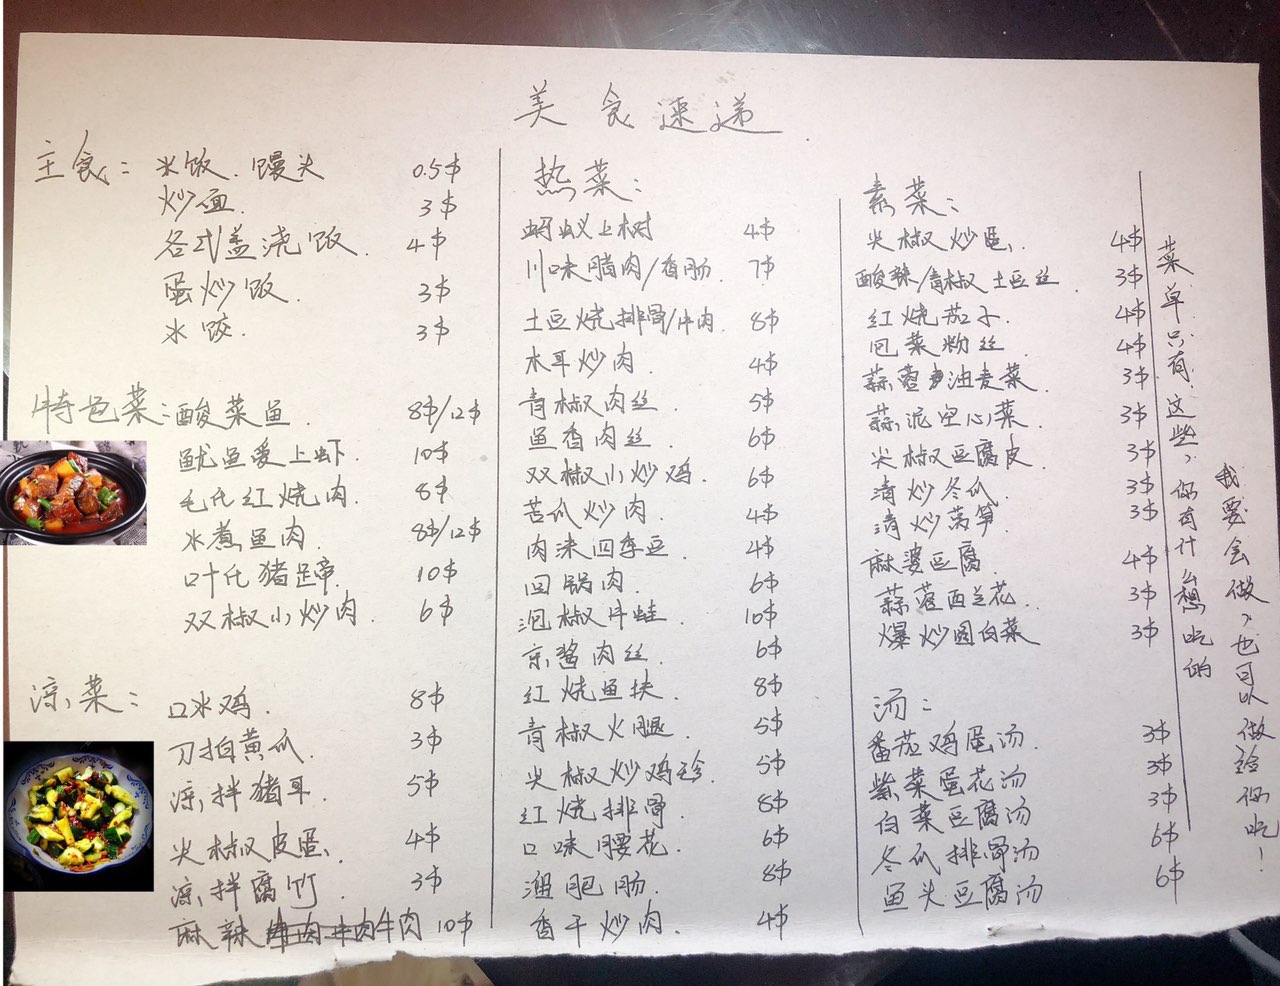 美食速递
主食：米饭、馒头 0.5$
炒面 3$
各式盖浇饭 4$
蛋炒饭 3$
水饺 3$
特色菜：酸菜鱼 8$/12$
鱿鱼爱上虾 10$
毛氏红烧肉 8$
水煮鱼肉 8$/12$
叶氏猪蹄 10$
双椒小炒肉 6$
凉菜：口水鸡 8$
刀拍黄瓜 3$
凉拌猪耳 5$
尖椒皮蛋 4$
凉拌腐竹 3$
麻辣牛肉 10$
热菜：
蚂蚁上树 4$
川味腊肉/香肠 7$
土豆烧排骨/牛肉 8$
木耳炒肉 4$
青椒肉丝 5$
鱼香肉丝 6$
双椒小炒鸡 6$
苦瓜炒肉 4$
肉沫四季豆 4$
回锅肉 6$
泡椒牛蛙 10$
京酱肉丝 6$
红烧鱼块 8$
青椒火腿 5$
尖椒炒鸡珍 5$
红烧排骨 8$
口味腰花 6$
溜肥肠 8$
香干炒肉 4$
素菜：
尖椒炒蛋 4$
酸辣/青椒土豆丝 3$
红烧茄子 4$
包菜粉丝 4$
蒜蓉油麦菜 3$
蒜泥空心菜 3$
尖椒豆腐皮 3$
清炒冬瓜 3$
清炒莴笋 3$
麻婆豆腐 4$
蒜蓉西兰花 3$
爆炒圆白菜 3$
汤：
番茄鸡蛋汤 3$
紫菜蛋花汤 3$
白菜豆腐汤 3$
冬瓜排骨汤 6$
鱼头豆腐汤 6$
菜单只有这些，你有什么想吃的
我要会做，也可以做给你吃！